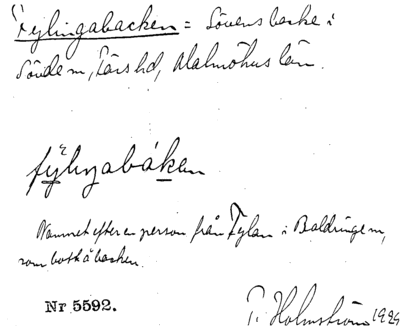 Fejlingabacken = Sövens backe i
Sövde sn, Färs hd, Malmöhus län.
fýlıŋabáken
Namnet efter en person från Fylan i Baldringe sn,
som bott å backen.
Nr 5592.
P. Holmström 1929